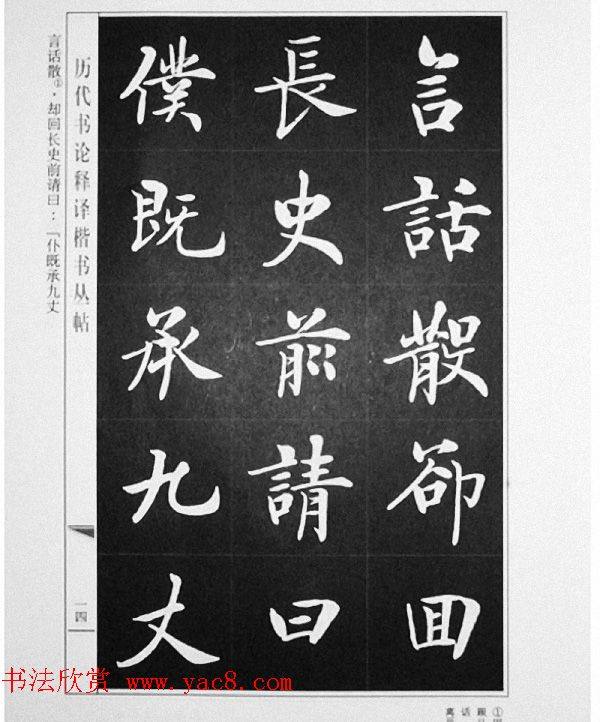 言話散卻回
長史前請曰
僕既承九丈
历代书论释译楷书丛帖
一四
言话散①，却回长史前请曰：“仆既承九丈
书法欣赏 www.yac8.com